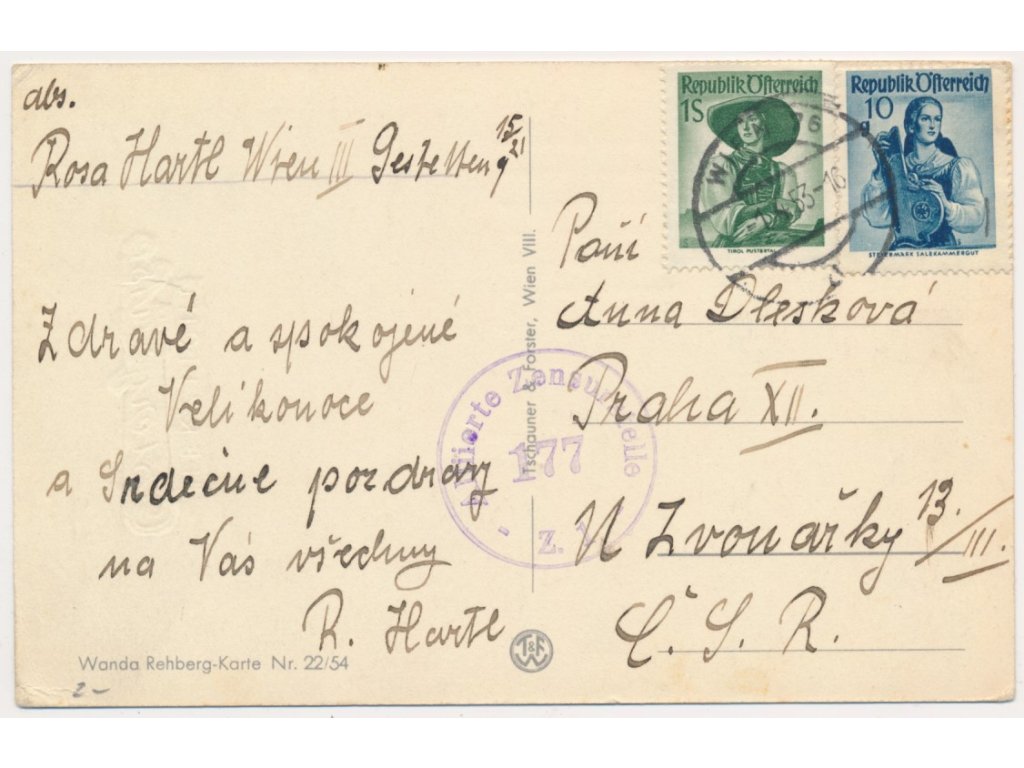 abs.
Rosa Hartl Wien III
15/21
Zdravé a spokojené
Velikonoce
a Srdečné pozdravy
na Vás všechny
R. Hartl
Wanda Rehberg-Karte Nr. 22/54
2-
Tschauner & Forster, Wien VIII.
T&F
W
Alliierte Zensurstelle
177
Z.
Republik Österreich
1S
TIROL PUSTERTAL
Republik Österreich
10
STEIERMARK SALZKAMMERGUT
WIEN 76
53-16
Paní
Anna Dlesková
Praha XII.
N Zvonařky 13./III.
Č. S. R.